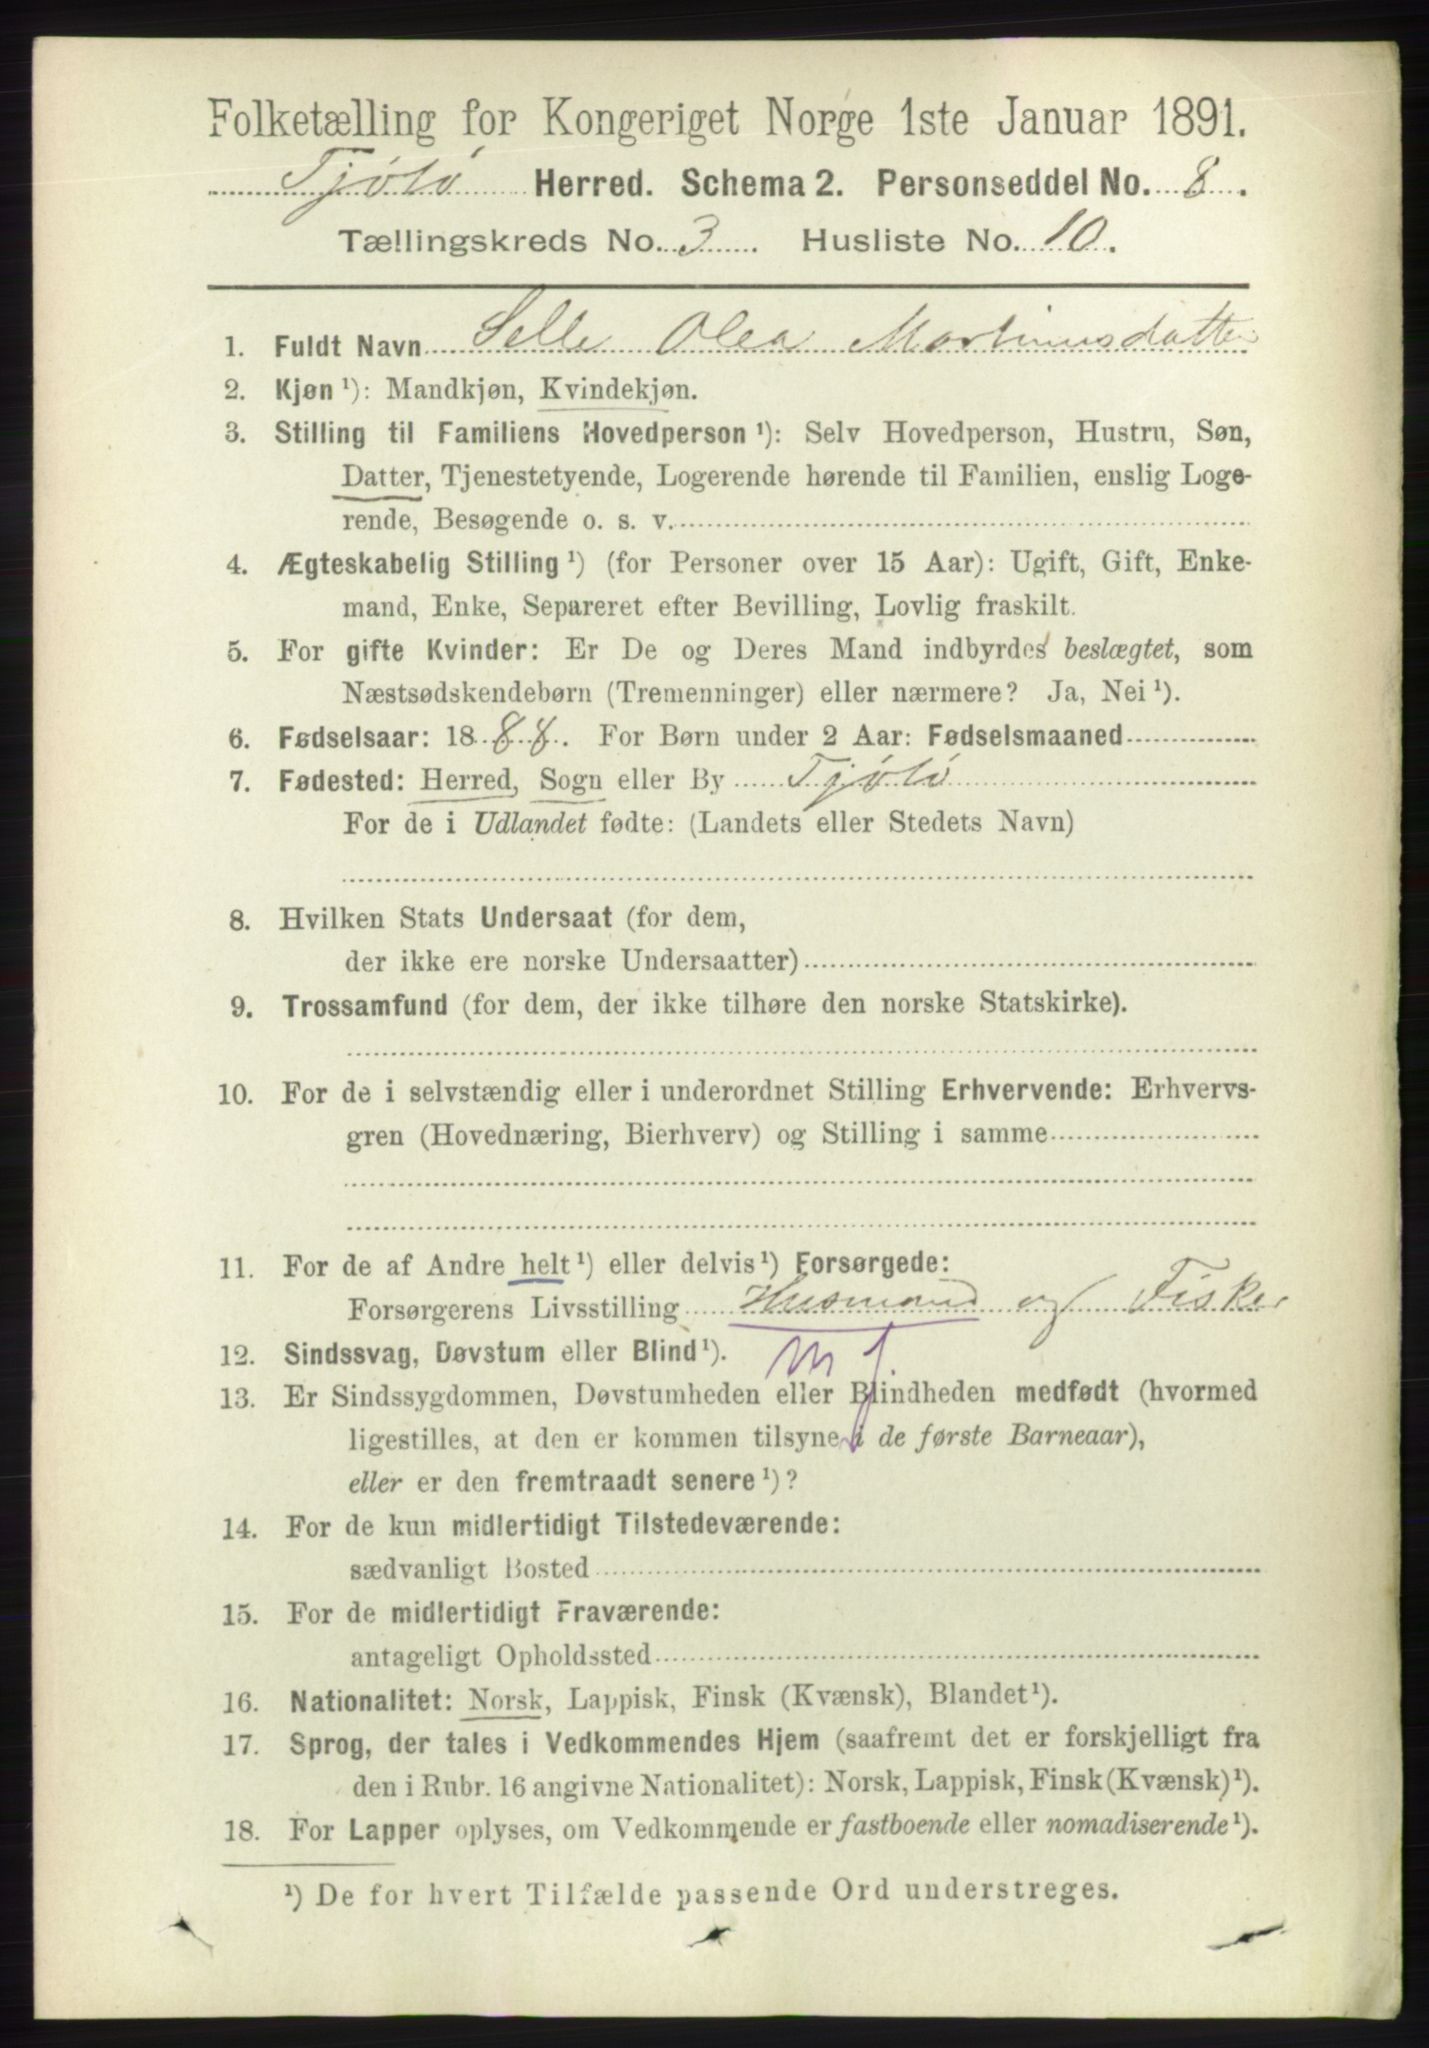 Folketælling for Kongeriget Norge 1ste Januar 1891.
Tjötö Herred. Schema 2. Personseddel No. 8.
Tællingskreds No. 3. Husliste No. 10.
1. Fuldt Navn Selle Olea Martinusdatter
2. Kjøn ¹): Mandkjøn, Kvindekjøn.
3. Stilling til Familiens Hovedperson ¹): Selv Hovedperson, Hustru, Søn,
Datter, Tjenestetyende, Logerende hørende til Familien, enslig Loge-
rende, Besøgende o. s. v.
4. Ægteskabelig Stilling ¹) (for Personer over 15 Aar): Ugift, Gift, Enke-
mand, Enke, Separeret efter Bevilling, Lovlig fraskilt.
5. For gifte Kvinder: Er De og Deres Mand indbyrdes beslægtet, som
Næstsødskendebørn (Tremenninger) eller nærmere? Ja, Nei ¹).
6. Fødselsaar: 1888. For Børn under 2 Aar: Fødselsmaaned
7. Fødested: Herred, Sogn eller By Tjötö
For de i Udlandet fødte: (Landets eller Stedets Navn)
8. Hvilken Stats Undersaat (for dem,
der ikke ere norske Undersaatter)
9. Trossamfund (for dem, der ikke tilhøre den norske Statskirke).
10. For de i selvstændig eller i underordnet Stilling Erhvervende: Erhvervs-
gren (Hovednæring, Bierhverv) og Stilling i samme
11. For de af Andre helt ¹) eller delvis ¹) Forsørgede:
Forsørgerens Livsstilling Husmand og Fisker
12. Sindssvag, Døvstum eller Blind ¹). m f.
13. Er Sindssygdommen, Døvstumheden eller Blindheden medfødt (hvormed
ligestilles, at den er kommen tilsyne i de første Barneaar),
eller er den fremtraadt senere ¹)?
14. For de kun midlertidigt Tilstedeværende:
sædvanligt Bosted
15. For de midlertidigt Fraværende:
antageligt Opholdssted
16. Nationalitet: Norsk, Lappisk, Finsk (Kvænsk), Blandet ¹).
17. Sprog, der tales i Vedkommendes Hjem (saafremt det er forskjelligt fra
den i Rubr. 16 angivne Nationalitet): Norsk, Lappisk, Finsk (Kvænsk) ¹).
18. For Lapper oplyses, om Vedkommende er fastboende eller nomadiserende ¹).
¹) De for hvert Tilfælde passende Ord understreges.